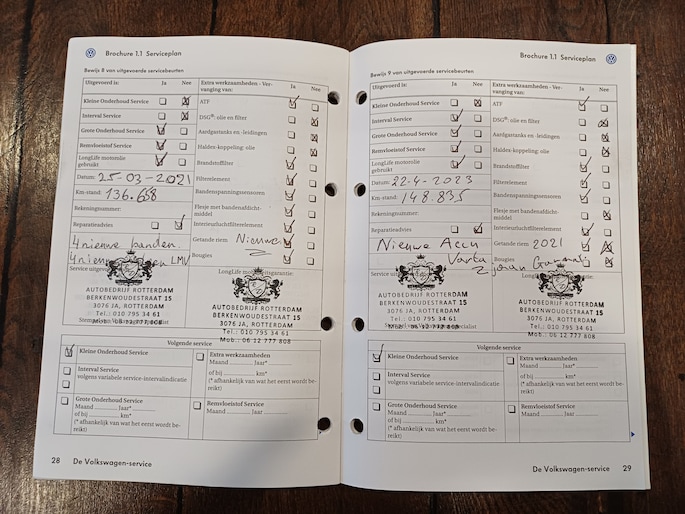 Brochure 1.1 Serviceplan
Bewijs 8 van uitgevoerde servicebeurten
Uitgevoerd is: Ja Nee
Kleine Onderhoud Service
Interval Service
Grote Onderhoud Service
Remvloeistof Service
LongLife motorolie gebruikt
Datum: 25-03-2021
Km-stand: 136.658
Rekeningnummer:
Reparatieadvies
4 nieuwe banden.
4 nieuwe LMV
Service uitgevoerd
AUTOBEDRIJF ROTTERDAM
BERKENWOUDESTRAAT 15
3076 JA, ROTTERDAM
Tel.: 010 795 34 61
Mob.: 06 12 777 808
Extra werkzaamheden - Ver-
vanging van: Ja Nee
ATF
DSG®: olie en filter
Aardgastanks en -leidingen
Haldex-koppeling: olie
Brandstoffilter
Filterelement
Bandenspanningssensoren
Flesje met bandenafdicht-
middel
Interieurluchtfilterelement
Getande riem Nieuwe
Bougies
LongLife Mobiliteitsgarantie:
AUTOBEDRIJF ROTTERDAM
BERKENWOUDESTRAAT 15
3076 JA, ROTTERDAM
Tel.: 010 795 34 61
Mob.: 06 12 777 808
Volgende service
Kleine Onderhoud Service
Interval Service
volgens variabele service-intervalindicatie
Grote Onderhoud Service
Maand ......... jaar*
of bij ......... km*
(* afhankelijk van wat het eerst wordt be-
reikt)
Extra werkzaamheden
Maand ......... jaar*
of bij ......... km*
(* afhankelijk van wat het eerst wordt be-
reikt)
Remvloeistof Service
Maand ......... Jaar
28 De Volkswagen-service
Brochure 1.1 Serviceplan
Bewijs 9 van uitgevoerde servicebeurten
Uitgevoerd is: Ja Nee
Kleine Onderhoud Service
Interval Service
Grote Onderhoud Service
Remvloeistof Service
LongLife motorolie
gebruikt
Datum: 22-4-2023
Km-stand: 148.835
Rekeningnummer:
Reparatieadvies
Nieuwe Accu
Varta
Service uitgevoerd
AUTOBEDRIJF ROTTERDAM
BERKENWOUDESTRAAT 15
3076 JA, ROTTERDAM
Tel.: 010 795 34 61
Mob.: 06 12 777 808
Extra werkzaamheden - Ver-
vanging van: Ja Nee
ATF
DSG®: olie en filter
Aardgastanks en -leidingen
Haldex-koppeling: olie
Brandstoffilter
Filterelement
Bandenspanningssensoren
Flesje met bandenafdicht-
middel
Interieurluchtfilterelement
Getande riem 2021
Bougies
AUTOBEDRIJF ROTTERDAM
BERKENWOUDESTRAAT 15
3076 JA, ROTTERDAM
Tel.: 010 795 34 61
Mob.: 06 12 777 808
Volgende service
Kleine Onderhoud Service
Interval Service
volgens variabele service-intervalindicatie
Grote Onderhoud Service
Maand ......... jaar*
of bij ......... km*
(* afhankelijk van wat het eerst wordt be-
reikt)
Extra werkzaamheden
Maand ......... jaar*
of bij ......... km*
(* afhankelijk van wat het eerst wordt be-
reikt)
Remvloeistof Service
Maand ......... Jaar
De Volkswagen-service 29